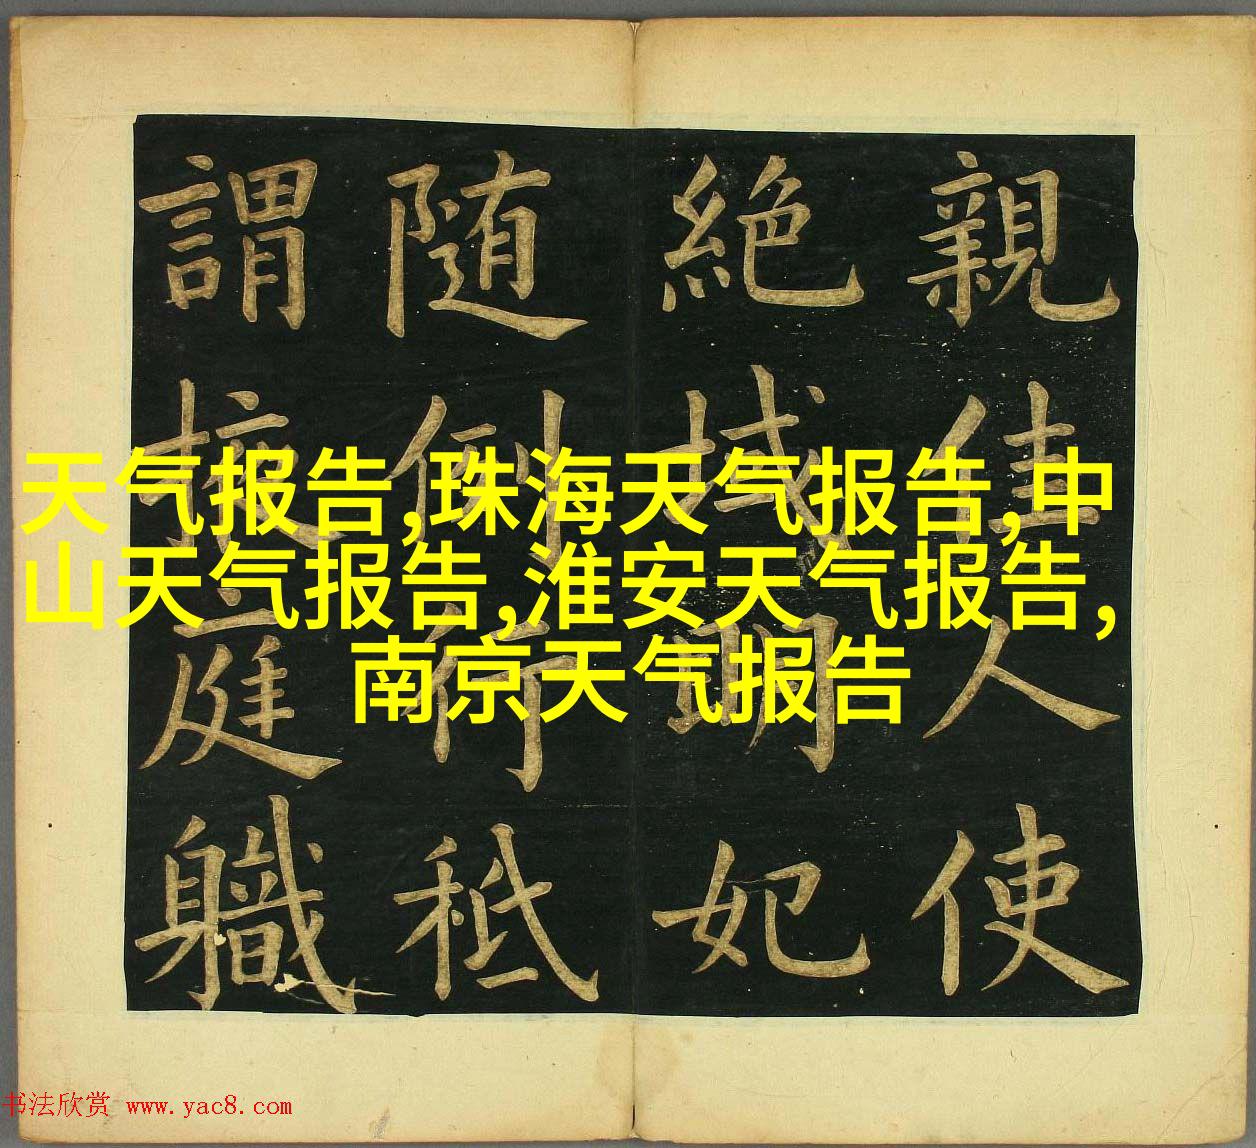 親佳人使
絶域明妃
随例秪
謂掖庭軄
天气报告,珠海天气报告,中
山天气报告,淮安天气报告,
南京天气报告
书法欣赏 www.yac8.com